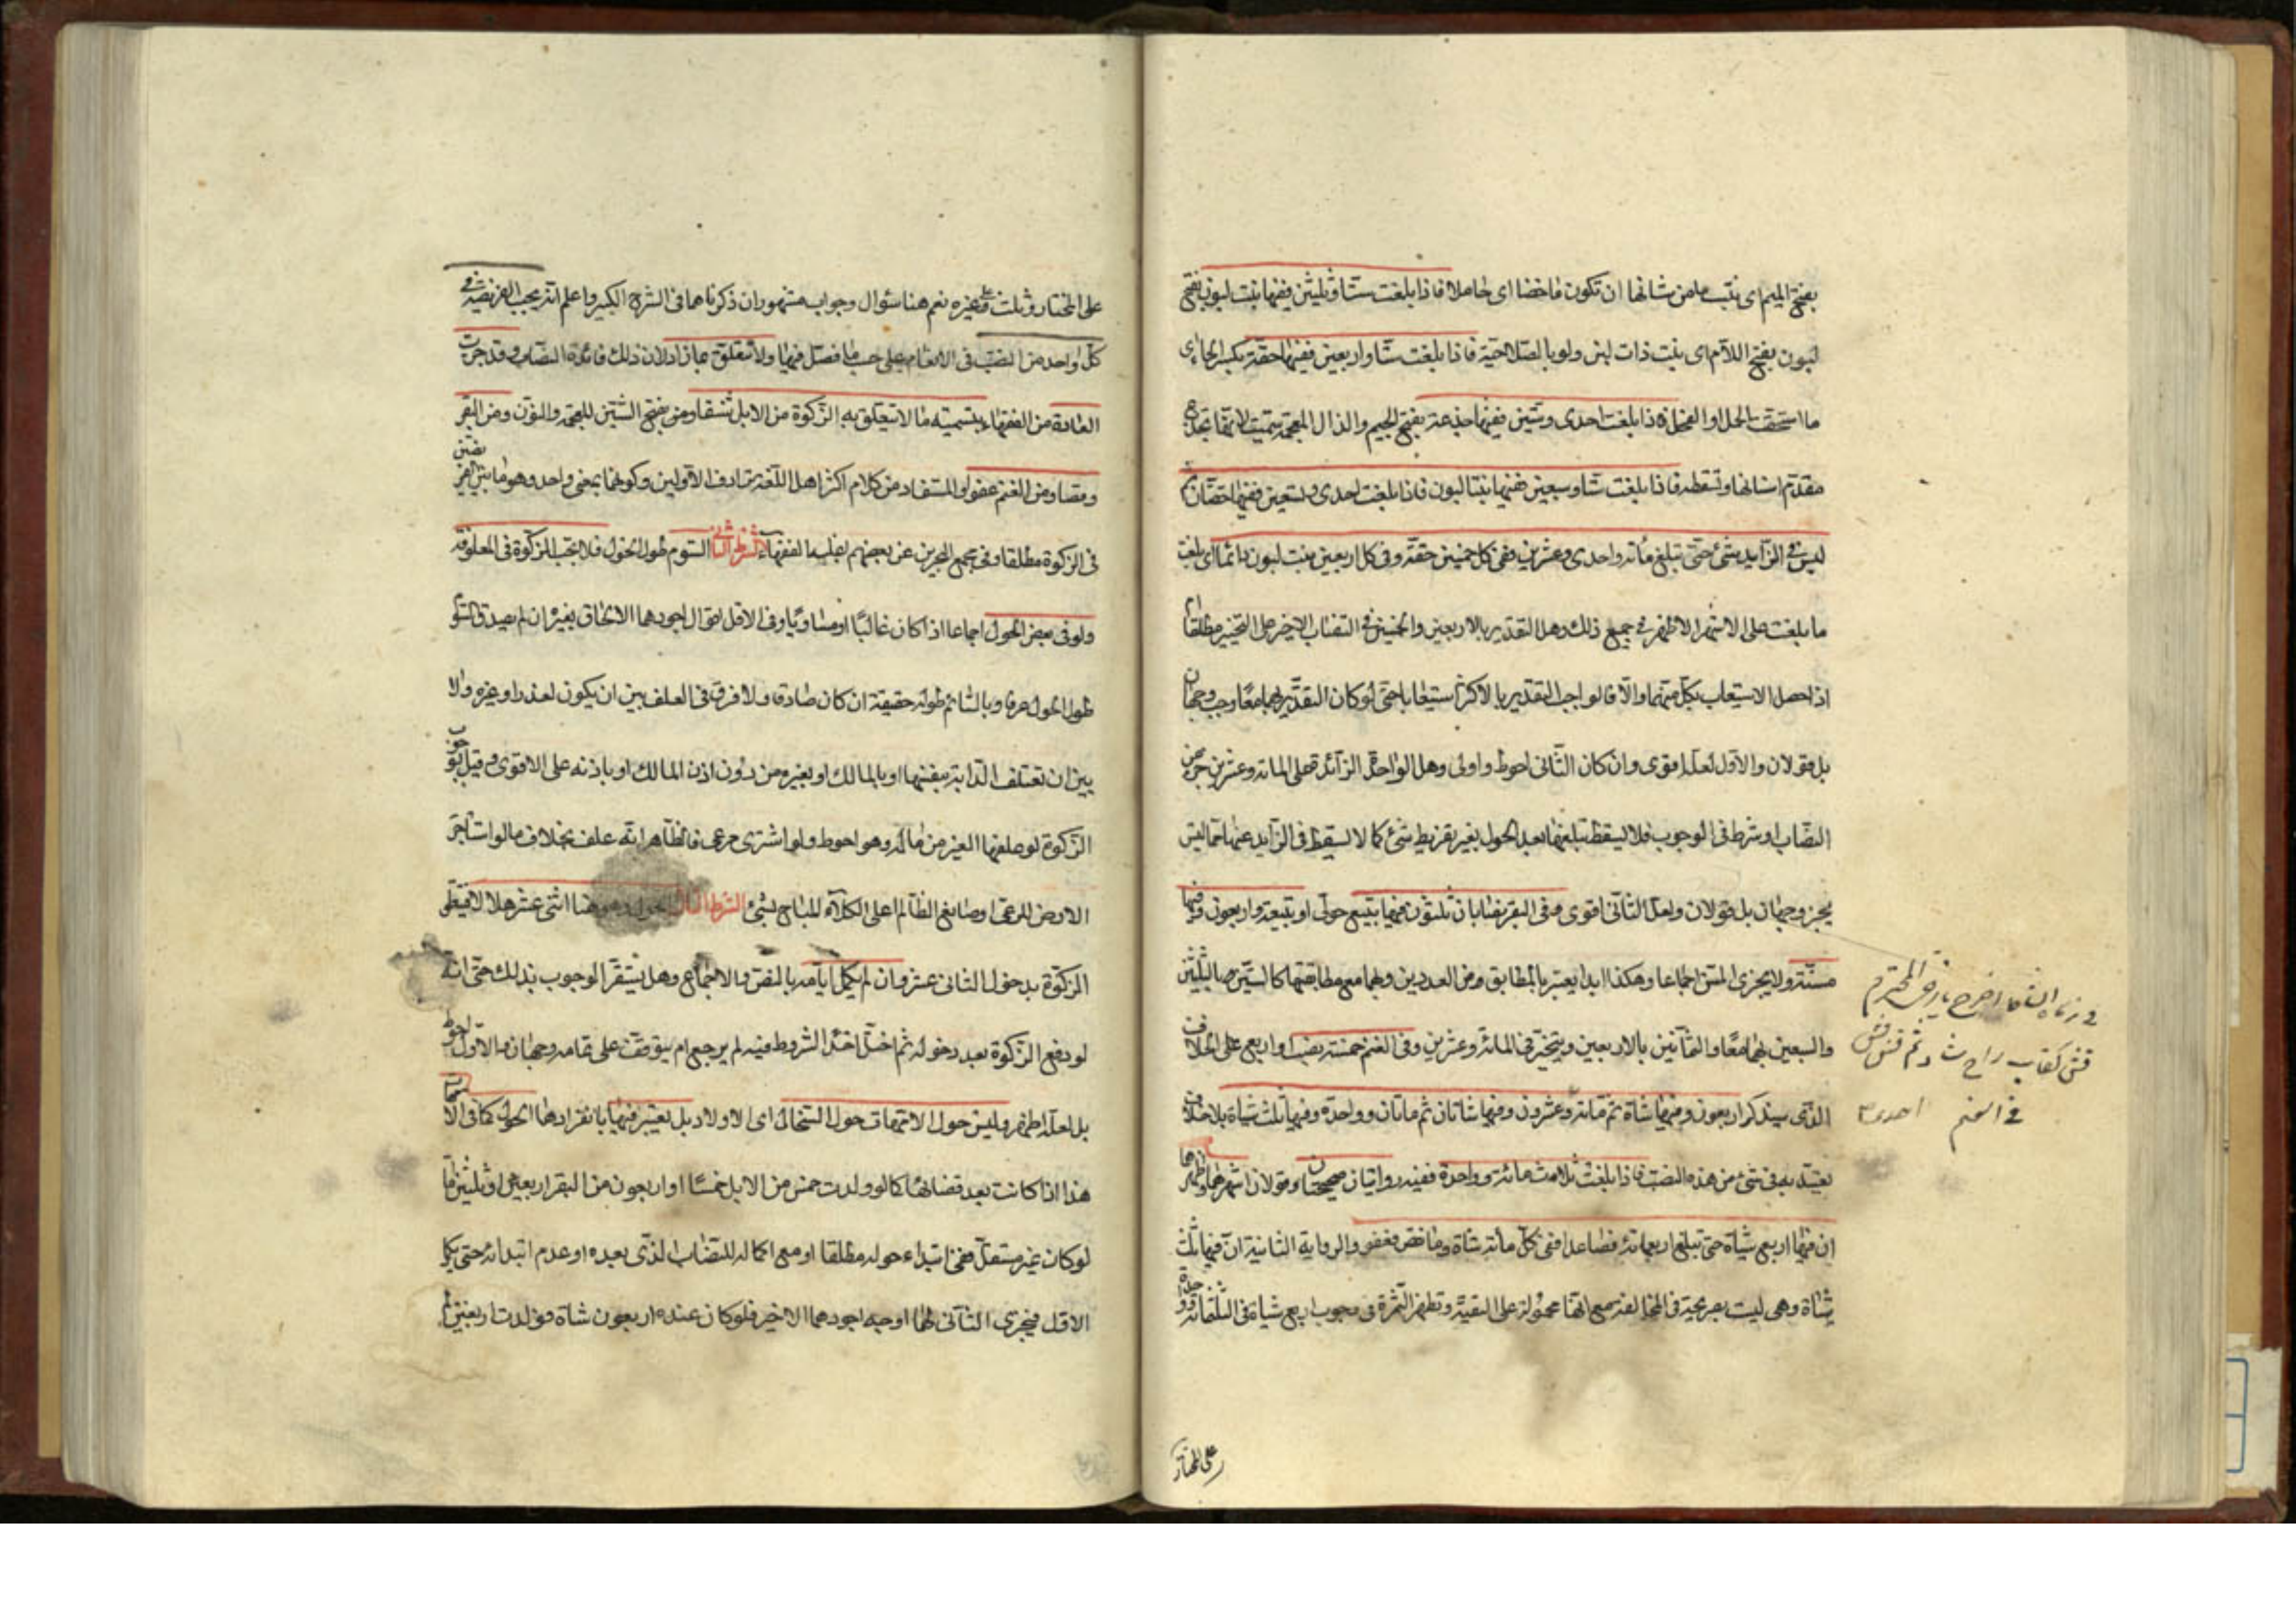 بفتح الميم اى بنت ما من شانها ان تكون ماخضا اى حاملا فاذا بلغت ستا وثلثين ففيها بنت لبون بفتح
لبون بفتح اللام اى بنت ذات لبن ولو بالصلاحية فاذا بلغت ستا واربعين ففيها حقة بكسر الحاء
ما استحقت الحمل او الفحل فاذا بلغت احدى وستين ففيها جذعة بفتح الجيم والذال المعجمة سميت لانها تجذع
مقدم اسنانها وتسقطه فاذا بلغت ستا وسبعين ففيها بنتا لبون فاذا بلغت احدى وتسعين ففيها حقتان ثم
ليس فى الزايد شئ حتى تبلغ مائة واحدى وعشرين ففى كل خمسين حقة وفى كل اربعين بنت لبون دائما اى بلغت
ما بلغت على الاشهر الاظهر فى جميع ذلك وهل التقدير بالاربعين والخمسين فى النصاب الاخير على التخيير مطلقا
اذا حصل الاستيعاب بكل منهما والا فالواجب التقدير بالاكثر استيعابا حتى لو كان التقدير بهما معا وجب وجهان
بل قولان والاول لعله اقوى وان كان الثانى احوط واولى وهل الواحدة الزائدة على المائة وعشرين جزء من
النصاب او شرط فى الوجوب فلا يسقط بتلفها بعد الحول بغير تفريط شئ كما لا يسقط فى الزايد عنها مما ليس
بجزء وجهان بل قولان ولعل الثانى اقوى وفى البقر نصابان ثلثون ففيها تبيع حولى او تبيعة واربعون وفيها
مسنة ولا يجزى المسن اجماعا وهكذا ابدا يعتبر بالمطابق من العددين وبهما مع مطابقتهما كالستين بالثلثين
والسبعين بهما معا والثمانين بالاربعين ويتخير فى المائة وعشرين وفى الغنم خمسة نصب او اربع على الخلاف
الذى سيذكر اربعون وفيها شاة ثم مائة وعشرون وفيها شاتان ثم ماتان وواحدة وفيها ثلث شياة بلا خلاف
يعتد به فى شئ من هذه النصب فاذا بلغت ثلاث مائة وواحدة ففيه روايتان صحيحتان وقولان اشهرهما واظهرهما
ان فيها اربع شياة حتى تبلغ اربعمائة فصاعدا ففى كل مائة شاة وما نقص فعفو والرواية الثانية ان فيها ثلث
شياة وهى ليست بصريحة فى المخالفة مع انها محمولة على التقية وتظهر الثمرة فى وجوب اربع شياة فى الثلثمائة وواحدة
فى الغنم احدى
على المختار
على المختار وثلث على غيره نعم هنا سؤال وجواب مشهوران ذكرناهما فى الشرح الكبير واعلم انه يجب الفريضة فى
كل واحد من النصب فى الانعام على حسب ما فصل فيها ولا تتعلق بما زاد لان ذلك فائدة النصاب وقد جرت
العادة من الفقهاء بتسمية ما لا تتعلق به الزكوة من الابل شنقا ومن بفتح الشين المعجمة والنون ومن البقر
وقصا ومن الغنم عفوا والمستفاد من كلام اكثر اهل اللغة ترادف الاولين وكونهما بمعنى واحد وهو ما بين الفريضتين
فى الزكوة مطلقا وفى مجمع البحرين عن بعضهم الفقهاء الشرط الثانى السوم طول الحول فلا تجب الزكوة فى المعلوفة
ولو فى بعض الحول اجماعا اذا كان غالبا او مساويا وفى الاقل اقوال اجودها الالحاق بغير ان لم يصدق السوم
طول الحول عرفا وبالسائم طوله حقيقة ان كان صادقا ولا فرق فى العلف بين ان يكون لعذر او غيره ولا
بين ان تعتلف الدابة بنفسها او بالمالك او بغيره من دون اذن المالك او باذنه على الاقوى وقيل بوجوب
الزكوة لو علفها الغير من ماله وهو احوط ولو اشترى مرعى فالظاهر انه علف بخلاف ما لو استاجر
الارض للرعى او صانع الظالم على الكلأ المباح بشئ الشرط الثالث الحول وهو هنا اثنى عشر هلالا فيعطى
الزكوة بدخول الثانى عشر وان لم يكمل ايامه بالنص والاجماع وهل يستقر الوجوب بذلك حتى انه
لو دفع الزكوة بعد دخوله ثم اختل احد الشروط فيه لم يرجع ام يتوقف على تمامه وجهان والاول احوط
بل لعله اظهر وليس حول الامهات حول السخال اى الاولاد بل يعتبر فيها بانفرادها الحول كما فى الامهات
هذا اذا كانت بعد نصابها كما لو ولدت خمس من الابل خمسا او اربعون من البقر اربعين او ثلثين اما
لو كان غير مستقل ففى ابتداء حوله مطلقا او مع اكماله للنصاب الذى بعده او عدم ابتدائه حتى يكمل
الاقل فيجزى الثانى لهما اوجه اجودها الاخير فلو كان عنده اربعون شاة فولدت اربعين